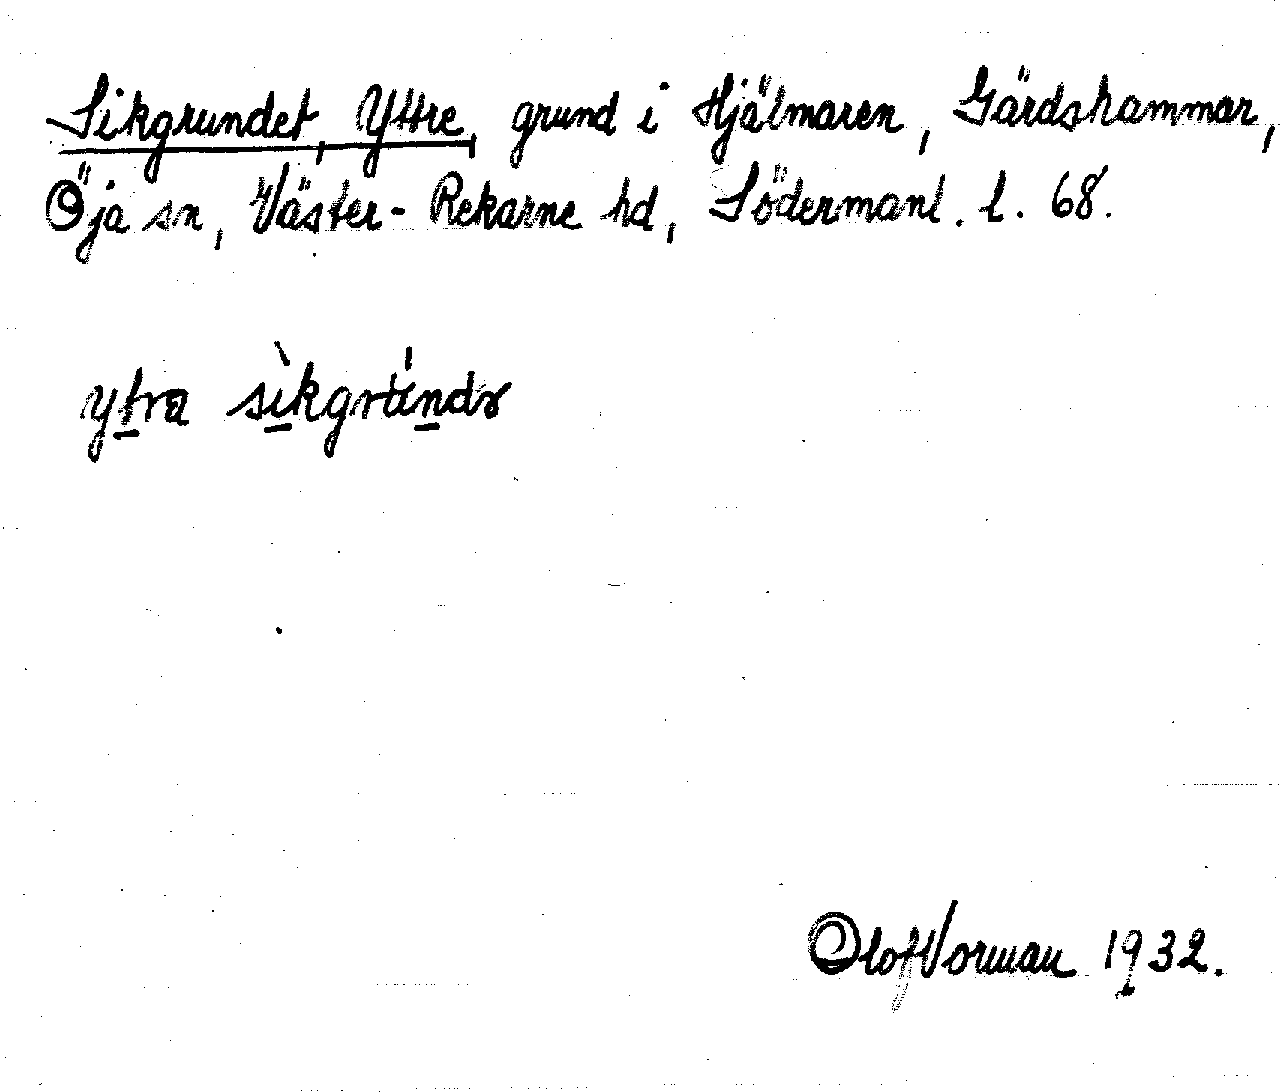 Sikgrundet, Yttre, grund i Hjälmaren, Gärdshammar,
Öja sn, Väster-Rekarne hd, Södermanl. l. 68.
ytra sìkgrúndɜ
Olof Norman 1932.